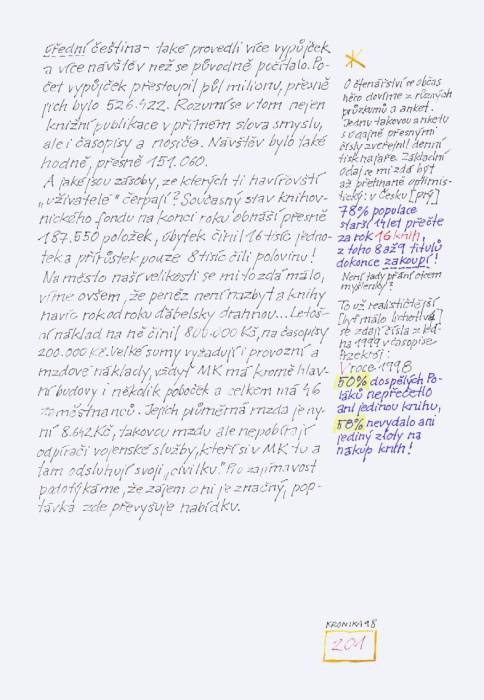 úřední čeština - také provedli více výpůjček
a více návštěv než se původně počítalo. Po-
čet výpůjček přestoupil půl milionu, přesně
jich bylo 526.422. Rozumí se v tom nejen
knižní publikace v přímém slova smyslu,
ale i časopisy a nosiče. Návštěv bylo také
hodně, přesně 151.060.
A jaké jsou zásoby, ze kterých ti havířovští
„uživatelé" čerpají? Současný stav knihov-
nického fondu na konci roku obnáší přesně
187.550 položek, úbytek činil 16 tisíc jedno-
tek a přírůstek pouze 8 tisíc čili polovinu!
Na město naší velikosti se mi to zdá málo,
víme ovšem, že peněz není nazbyt a knihy
navíc rok od roku ďábelsky drahnou... Letoš-
ní náklad na ně činil 800.000 Kč, na časopisy
200.000 Kč. Velké sumy vyžadují i provozní a
mzdové náklady, vždyť MK má kromě hlav-
ní budovy i několik poboček a celkem má 46
zaměstnanců. Jejich průměrná mzda je ny-
ní 8.642 Kč, takovou mzdu ale nepobírají
odpírači vojenské služby, kteří si v MK tu a
tam odsluhují svoji „civilku". Pro zajímavost
podotýkáme, že zájem o ni je značný, pop-
távka zde převyšuje nabídku.
O čtenářství se občas
něco dovíme z různých
průzkumů a anket.
Jednu takovou anketu
s údajně přesnými
čísly zveřejnil denní
tisk na jaře. Základní
údaj se mi zdá být
až přehnaně optimis-
tický: v Česku [prý]
78% populace
starší 14 let přečte
za rok 16 knih,
z toho 8 až 9 titulů
dokonce zakoupí!
Není tady přání otcem
myšlenky?
To už realističtější
[byť málo lichotivá]
se zdají čísla z led-
na 1999 v časopise
Překroj:
V roce 1998
50% dospělých Po-
láků nepřečetlo
ani jedinou knihu,
58% nevydalo ani
jediný zlotý na
nákup knih!
KRONIKA 98
201